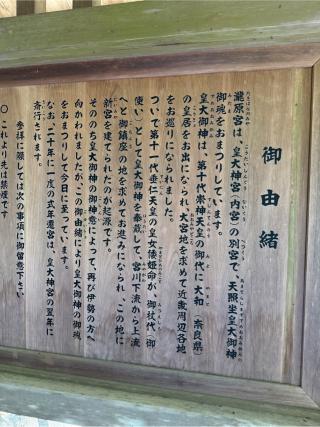 御由緒
瀧原宮は、皇大神宮(内宮)の別宮で、天照坐皇大御神
御魂をおまつりしています。
皇大御神は、第十代崇神天皇の御代に大和(奈良県)
の皇居をお出になられ、宮地を求めて近畿周辺各地
をお巡りになられました。
ついで第十一代垂仁天皇の皇女倭姫命が、御杖代(御
使い)として皇大御神を奉戴して、宮川下流から上流
へと御鎮座の地を求めてお進みになられ、この地に
新宮を建てられたのが起源です。
そののち皇大御神の御神意によって、再び伊勢の方へ
向かわれましたが、この御由緒により皇大御神の御魂
をおまつりして今日に至っています。
なお、二十年に一度の式年遷宮は、皇大神宮の翌年に
斎行されます。
参拝に際しては次の事項に御留意下さい
○これより先は禁煙です